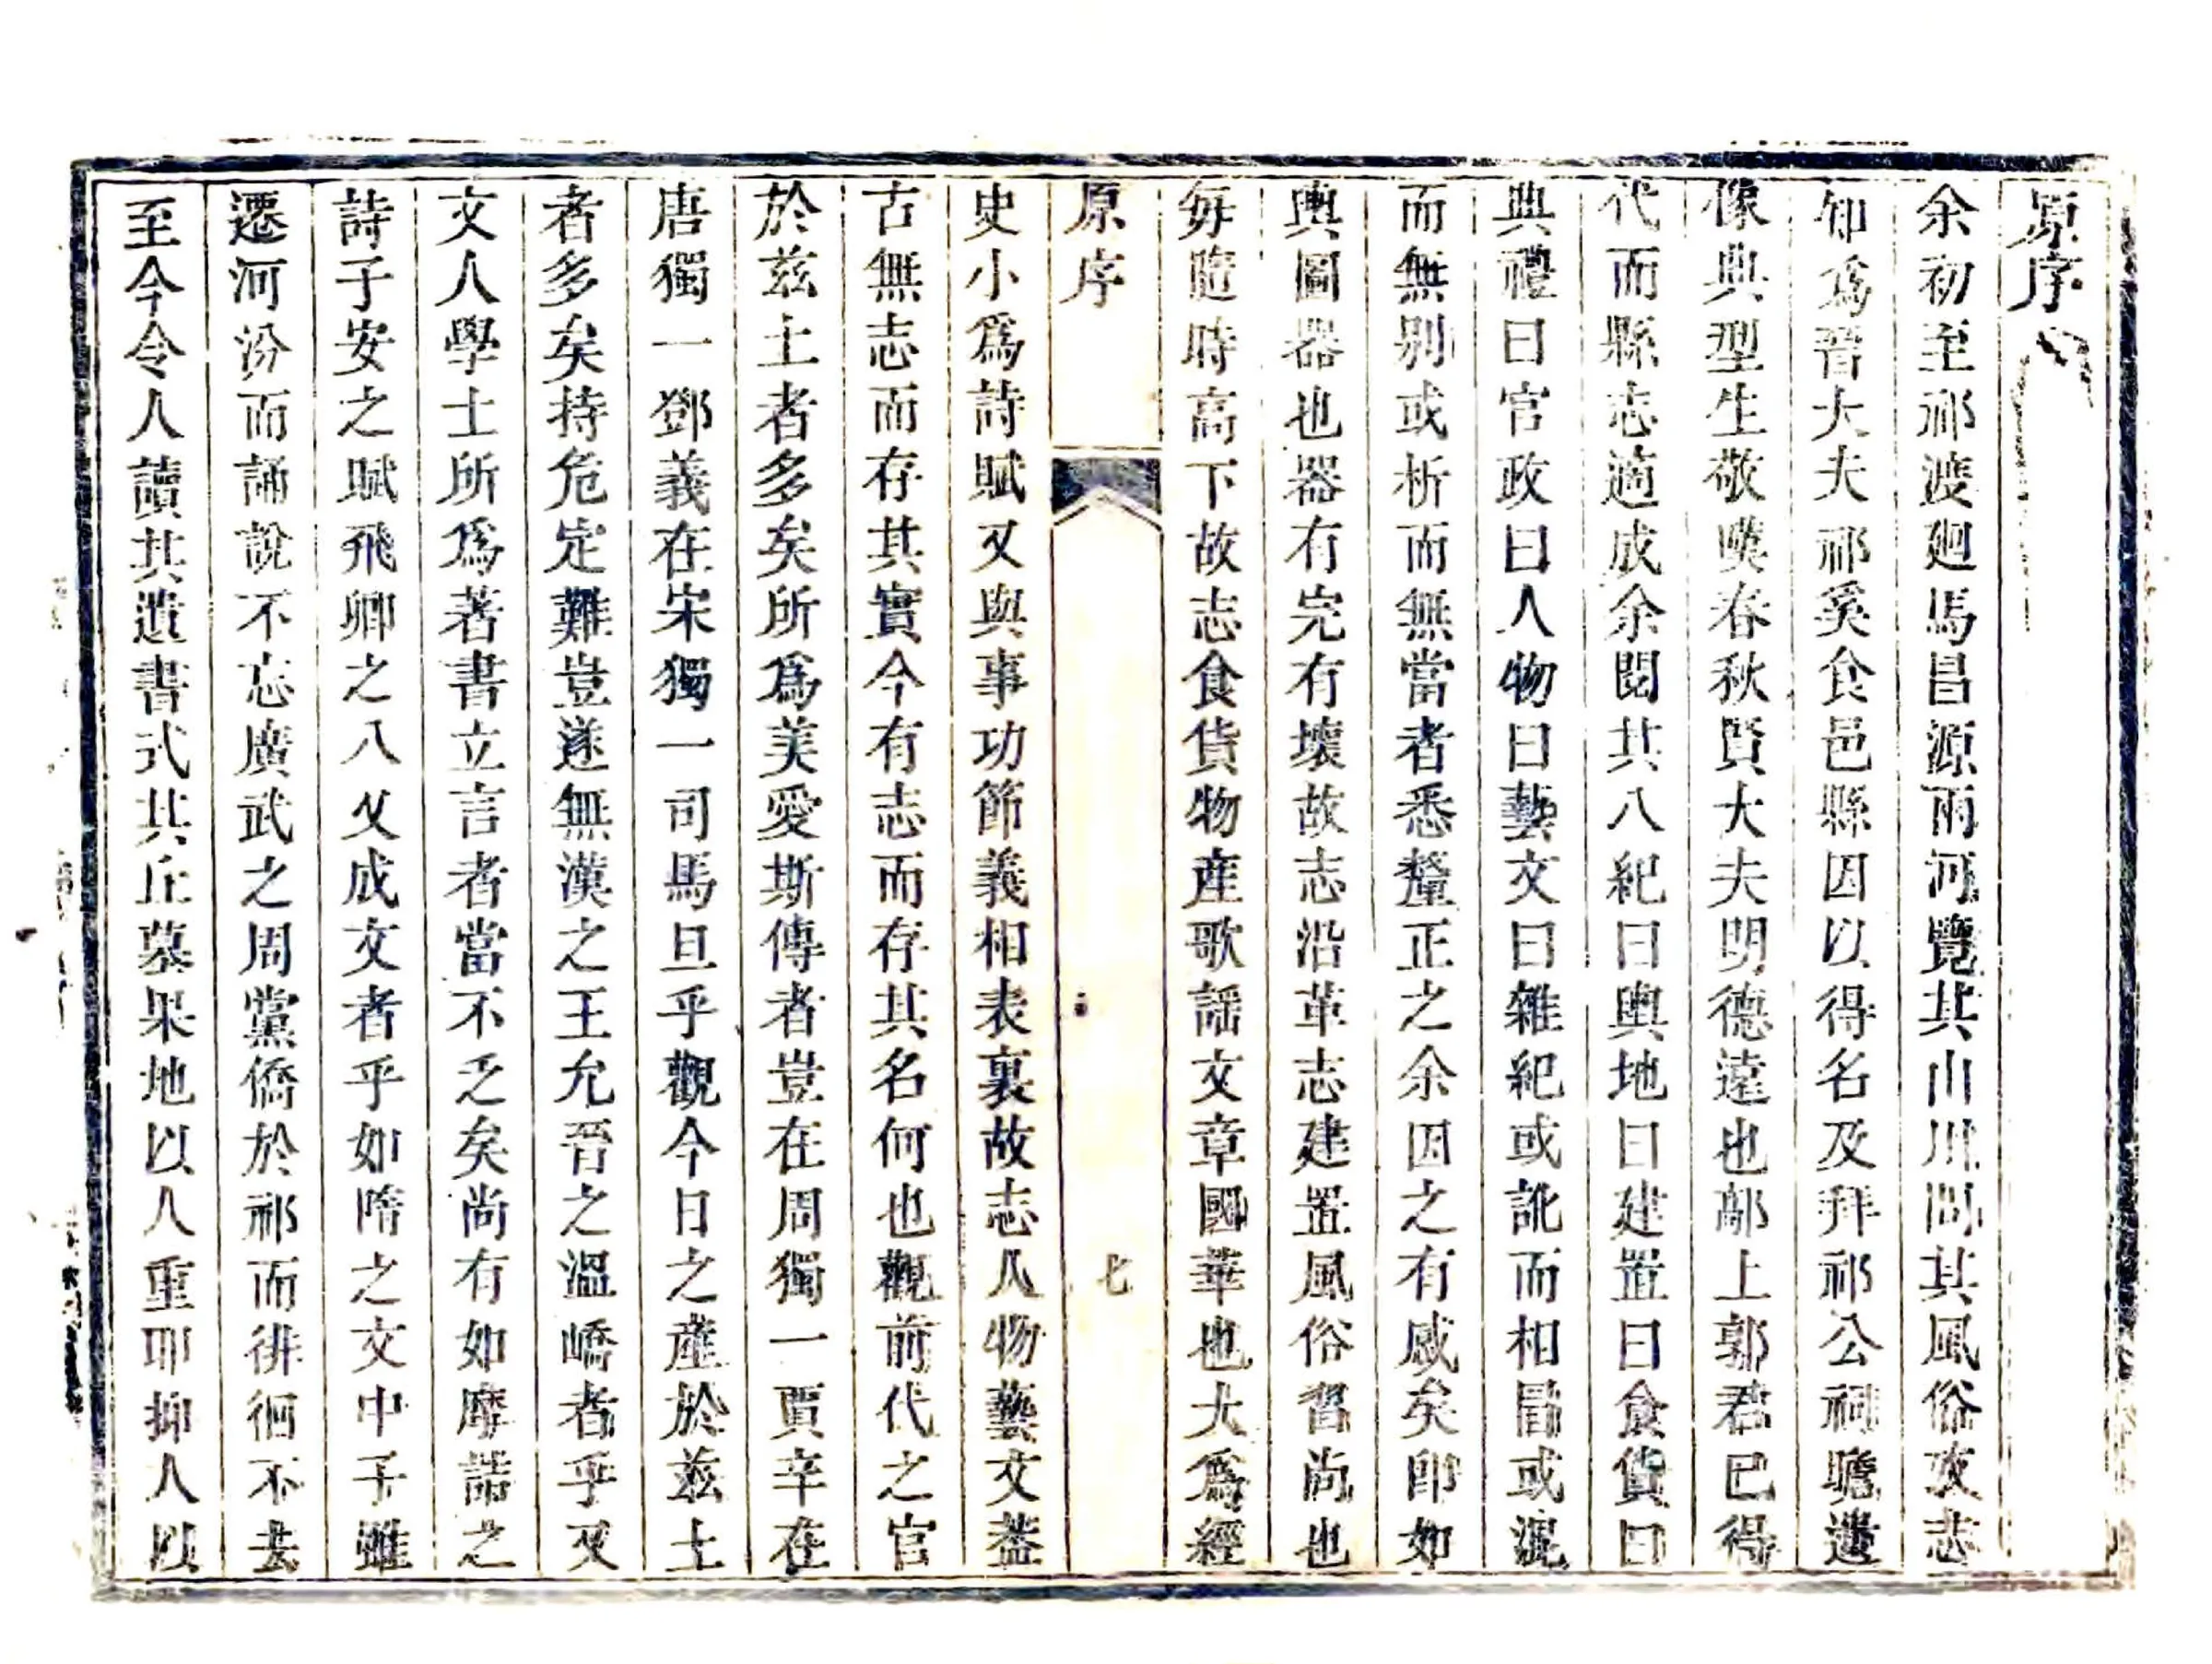 原序
余初至祁渡廻馬昌源兩河覽其山川問其風俗攷志
知爲晉大夫祁奚食邑縣因以得名及拜祁公祠瞻遺
像典型生敬嘆春秋賢大夫明德遠也鄗上郭君已得
代而縣志適成余閱其八紀曰輿地曰建置曰食貨曰
典禮曰官政曰人物曰藝文曰雜紀或訛而相冒或混
而無別或析而無當者悉釐正之余因之有感矣卽如
輿圖器也器有完有壞故志沿革志建置風俗習尚也
每隨時高下故志食貨物産歌謡文章國華也大爲經
原序
七
史小爲詩賦又與事功節義相表裏故志人物藝文葢
古無志而存其實今有志而存其名何也觀前代之官
於兹土者多矣所爲美愛斯傳者豈在周獨一賈辛在
唐獨一鄧義在宋獨一司馬旦乎觀今日之產於兹土
者多矣持危定難豈遂無漢之王允晉之溫嶠者乎又
文人學士所爲著書立言者當不乏矣尚有如摩詰之
詩子安之賦飛卿之八父成文者乎如隋之文中子雖
遷河汾而誦說不忘廣武之周黨僑於祁而徘徊不去
至今令人讀其遺書式其丘墓果地以人重耶抑人以